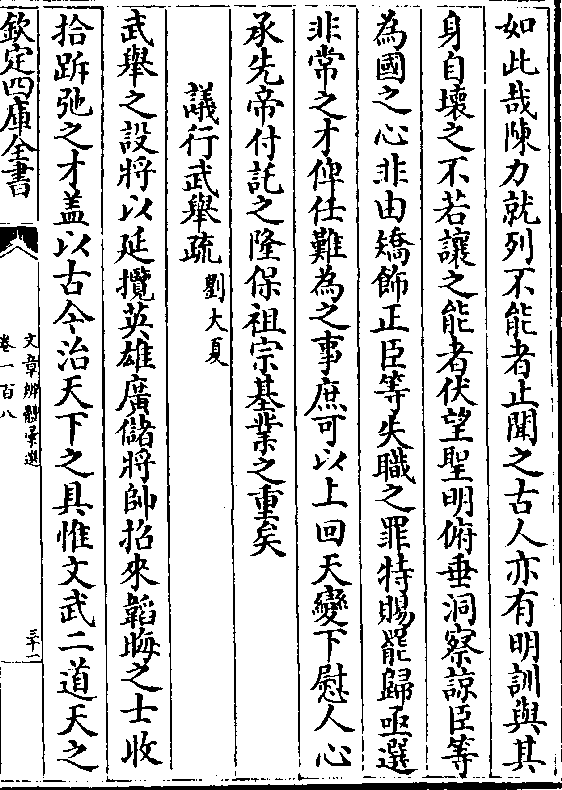 如此哉陳力就列不能者止聞之古人亦有明訓與其
身自壞之不若讓之能者伏望聖明俯垂洞察諒臣等
為國之心非由矯飾正臣等失職之罪特賜罷歸亟選
非常之才俾任難為之事庶可以上回天變下慰人心
承先帝付託之隆保祖宗基業之重矣
議行武舉疏 劉大夏
武舉之設將以延攬英雄廣儲將帥招來韜晦之士收
拾跅弛之才蓋以古今治天下之具惟文武二道天之
欽定四庫全書
文章辨體彙選
卷一百八
三十一